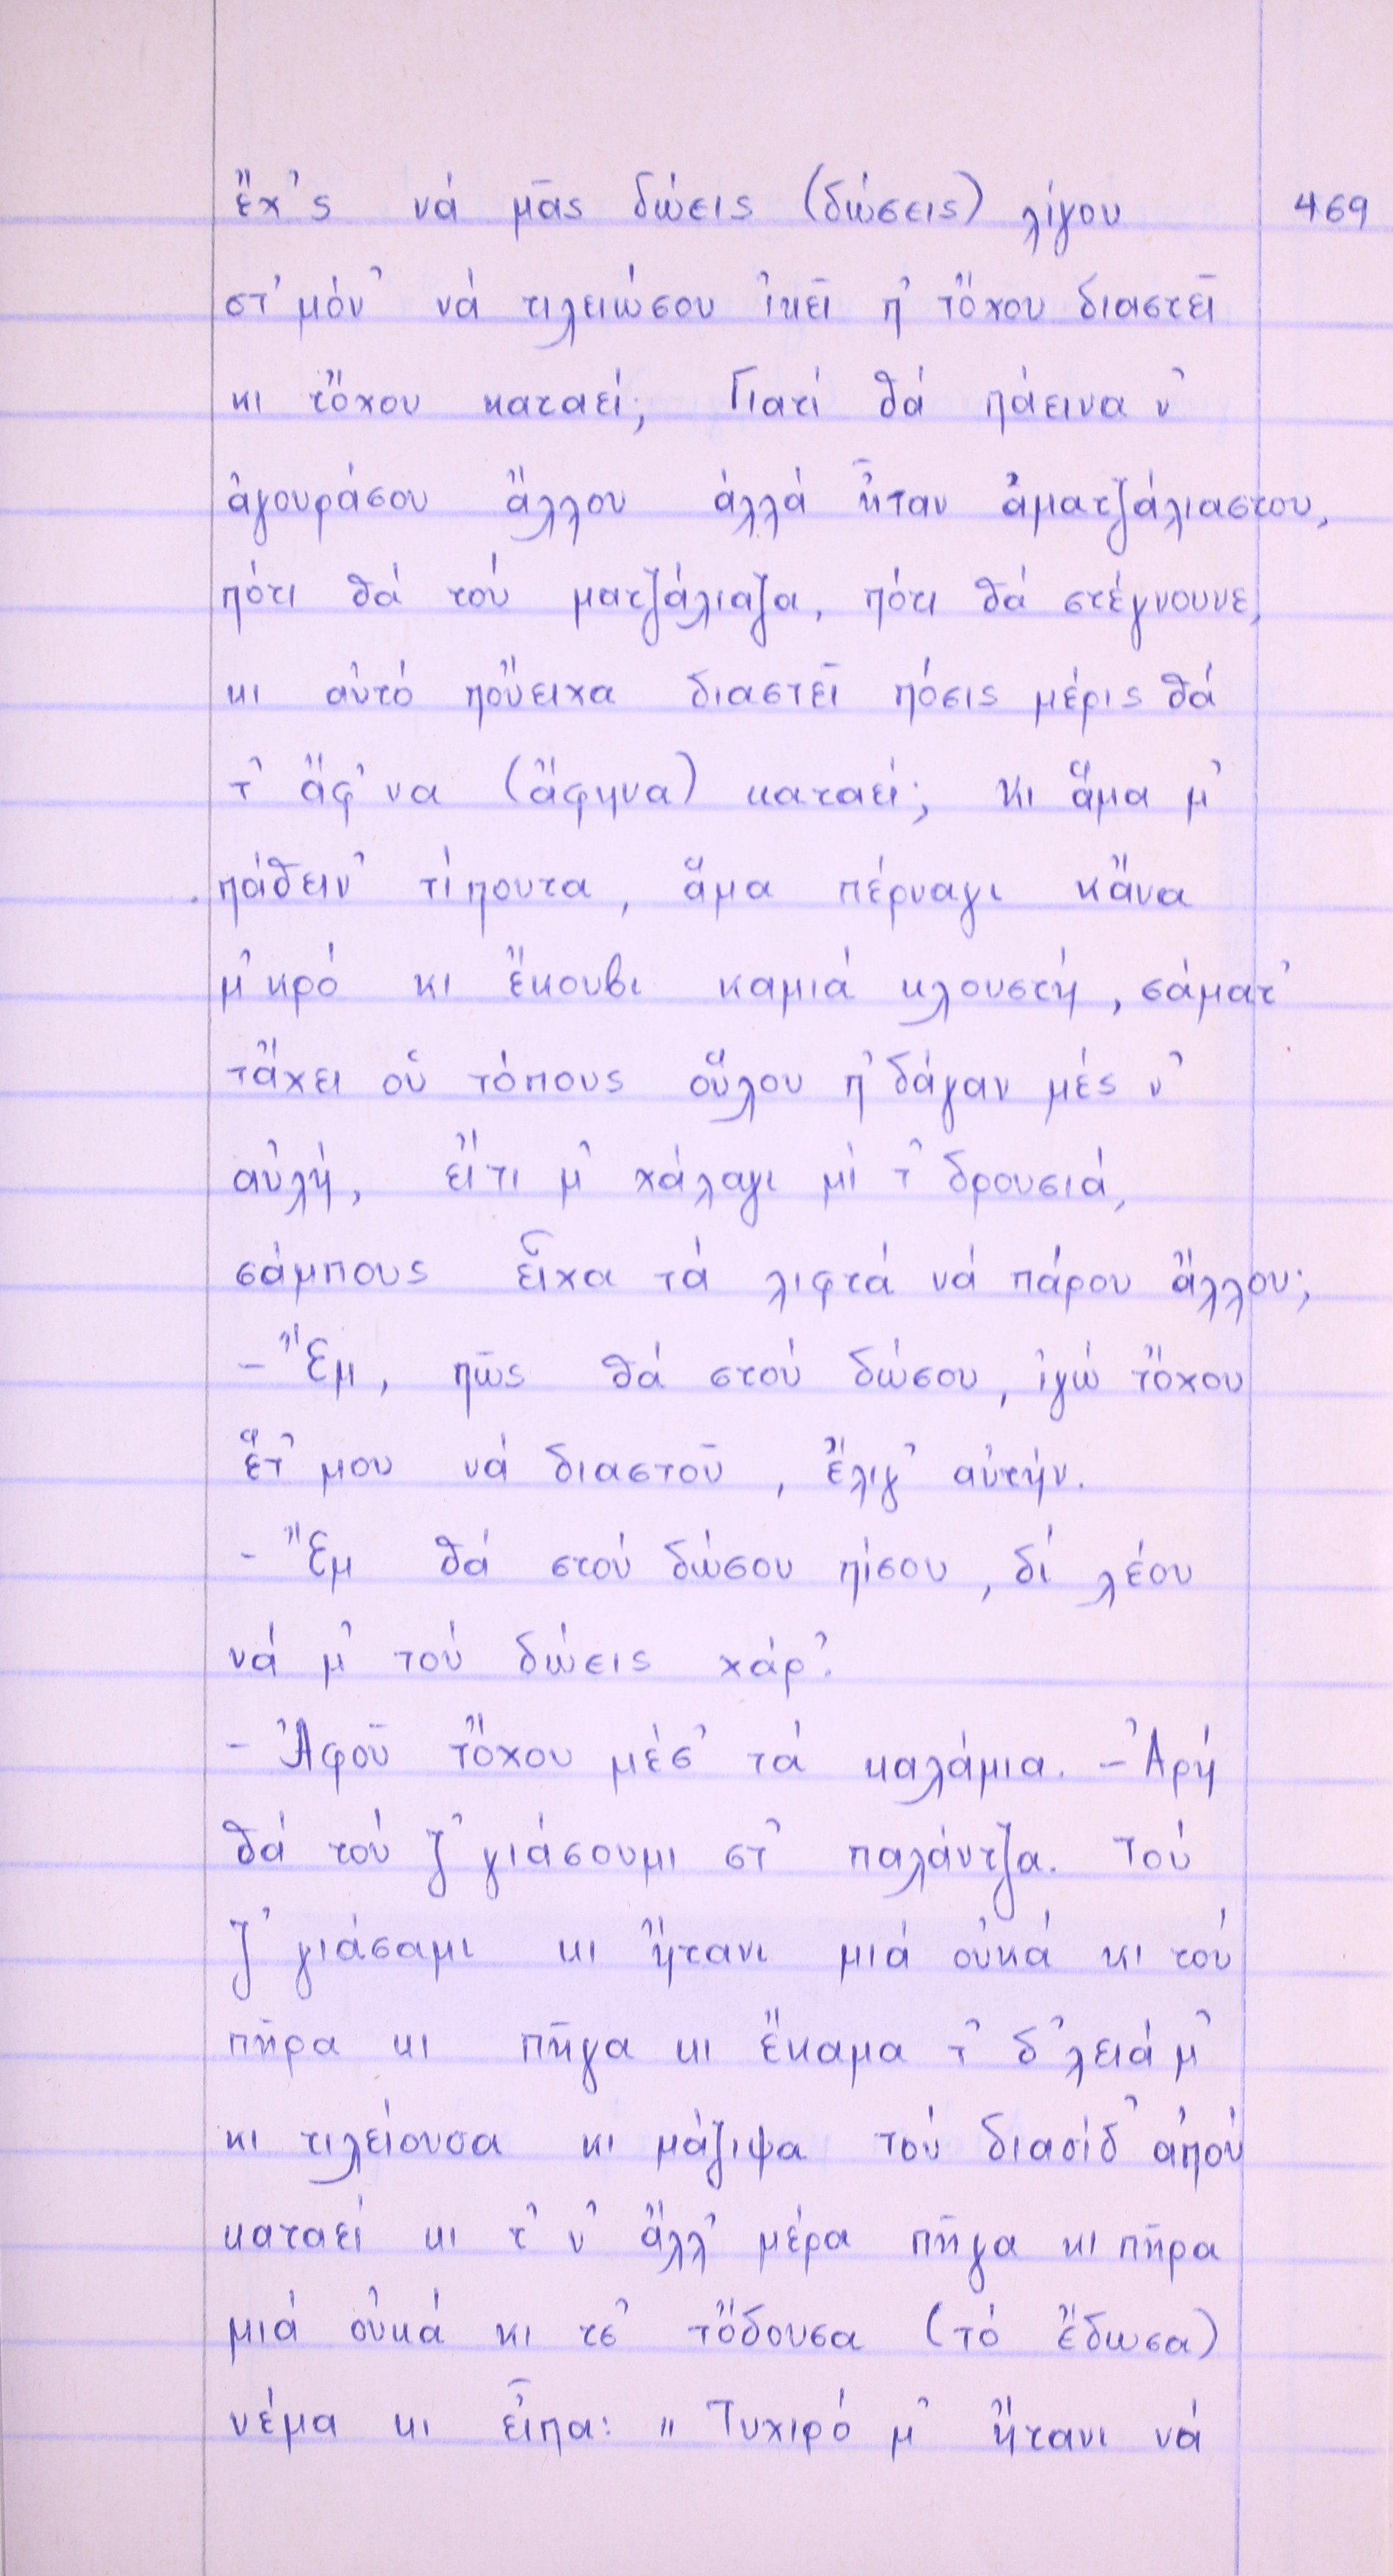 ἔχ'ς νά μᾶς δώεις (δώσεις) λίγου 469
στ'μόν' νά τιλειώσου ἰκεῖ π' τὄχου διαστεῖ
κι τὄχου καταεί; Γιατί θά πάεινα ν'
ἀγουράσου ἄλλου ἀλλά ἦταν ἀματζάλιαστου,
πότι θά τού ματζάλιαζα, πότι θά στέγνουνε,
κι αὐτό πὄυειχα διαστεῖ πόσις μέρις θά
τ' ἄφ'να (ἄφηνα) καταεί; Κι ἅμα μ'
πάθειν' τίπουτα, ἅμα πέρναγι κἄνα
μ'κρό κι ἔκουβι καμιά κλουστή, σάματ'
τἄχει οὑ τόπους οὕλου π'δάγαν μές ν'
αὐλή, εἴτι μ' χάλαγι μί τ' δρουσιά,
σάμπους εἶχα τά λιφτά νά πάρου ἄλλου;
- Ἔμ, πῶς θά στού δώσου, ἰγώ τὄχου
ἕτ'μου νά διαστοῦ, ἔλιγ' αὐτήν.
- Ἔμ θά στού δώσου πίσου, δί λέου
νά μ' τού δώεις χάρ'.
- Ἀφοῦ τὄχου μέσ' τά καλάμια. - Ἀρή
θά τού ζ'γιάσουμι στ' παλάντζα. Τού
ζ'γιάσαμι κι ἤτανι μιά οὐκά κι τού
πῆρα κι πῆγα κι ἔκαμα τ' δ'λειά μ'
κι τιλείουσα κι μάζιψα τού διασίδ' ἀπού
καταεί κι τ' ν' ἄλλ' μέρα πῆγα κι πῆρα
μιά οὐκά κι τσ' τὄδουσα (τό ἔδωσα)
νέμα κι εἶπα: " Τυχιρό μ' ἤτανι νά